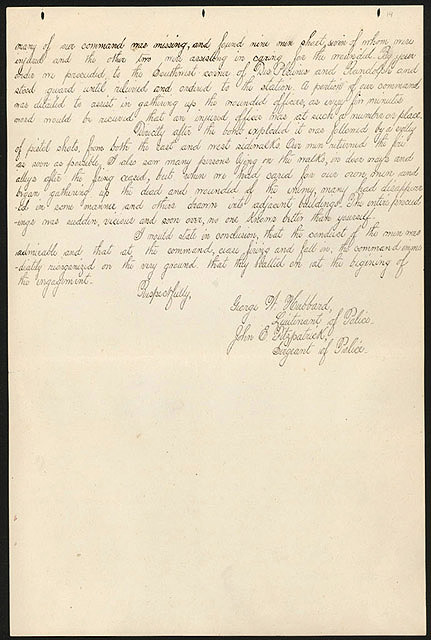 many of our command was missing, and found nine men short, seven of whom were
injured and the other two were assisting in caring for the wounded. By your
order we proceeded, to the southwest corner of Des Plaines and Randolph and
stood guard until relieved and ordered to the station. A portion of our command
was detailed to assist in gathering up the wounded officers, as every few minutes
word would be received that an injured officer was at such a number or place.
Directly after the bomb exploded it was followed by a volley
of pistol shots, from both the east and west sidewalks. Our men returned the fire
as soon as possible, I also saw many persons lying on the walks, in door ways and
alleys after the firing ceased, but when we had cared for our own men and
began gathering up the dead and wounded of the enemy, many had disappear
ed in some manner and others drawn into adjacent buildings. The entire proceed
-ings was sudden, vicious and soon over, no one knows better than yourself.
I would state in conclusion, that the conduct of the men was
admirable and that at the command, cease firing and fall in, the command imme
-diately reorganized on the very ground that they halted on at the begining of
the engagement.
Respectfully,
George W. Hubbard,
Lieutenant of Police.
John E Fitzpatrick,
Sergeant of Police.